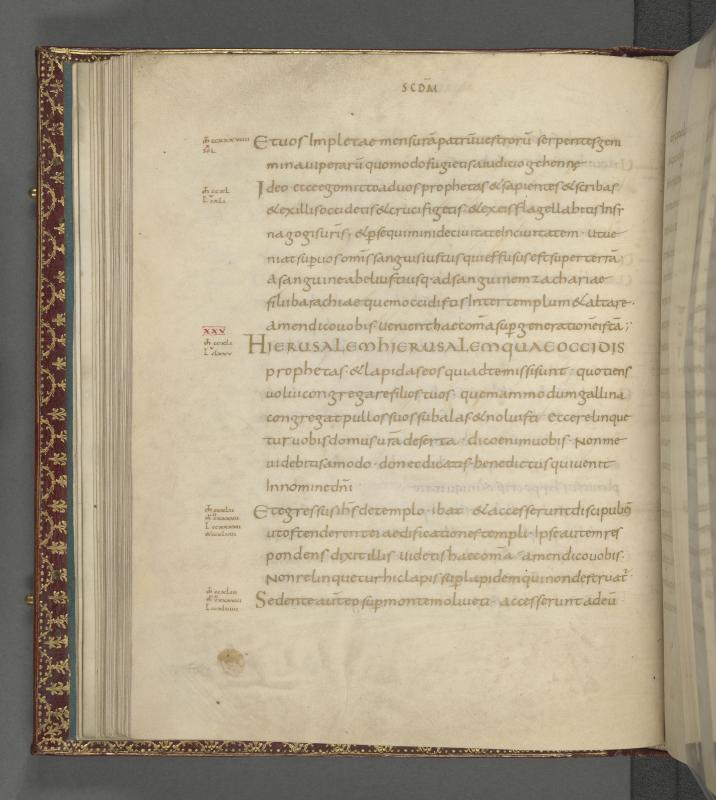 SCDM̄
Et vos Impletae mensurā patrū vestrorū serpentes geni
mina viperarū quomodo fugietis a iudicio gehennę
Ideo ecce ego mitto ad vos prophetas & sapientes & scribas
& ex illis occidetis & crucifigetis · & ex eis flagellabitis Insy
nagogis vr̄is · & ꝑsequimini de civitate In civitatem · Ut ve
niat sup vos omīs sanguis iustus qui effusus est super terrā
A sanguine abel iusti usq· ad sanguinem zachariae
filii barachiae quem occidistis Inter templum & altare ·
amen dico vobis · venient haec om̄a sup generationē istā ;
XXX
HIERUSALEM HIERUSALEM QUAE OCCIDIS
prophetas · & lapidas eos qui ad te missi sunt · quotiens
volui congregare filios tuos · quemammodum gallina
congregat pullos suos sub alas & noluisti · Ecce relinque
tur vobis domus vr̄a deserta · dico enim vobis · Non me
videbitis amodo · donec dicatis · benedictus qui venit
In nomine dn̄i
Et egressus ihs̄ de templo · ibat · & accesserunt discipuli ei
ut ostenderent ei aedificationes templi · Ipse autem res
pondens dixit illis · Videtis haec om̄a · amen dico vobis ·
Non relinquetur hic lapis sup lapidem qui non destruat̄ ·
Sedente aut̄ eo sup montem oliveti · accesserunt ad eū ·